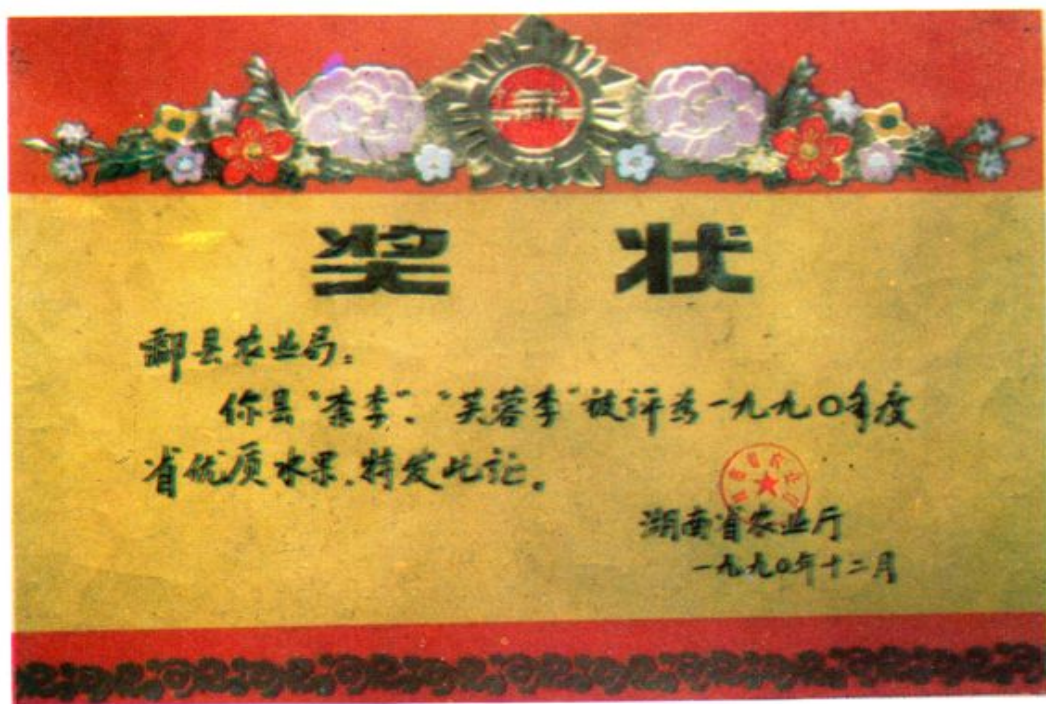 奖状
酃县农业局：
你县“柰李”、“芙蓉李”被评为一九九〇年度
省优质水果，特发此证。
湖南省农业厅
一九九〇年十二月